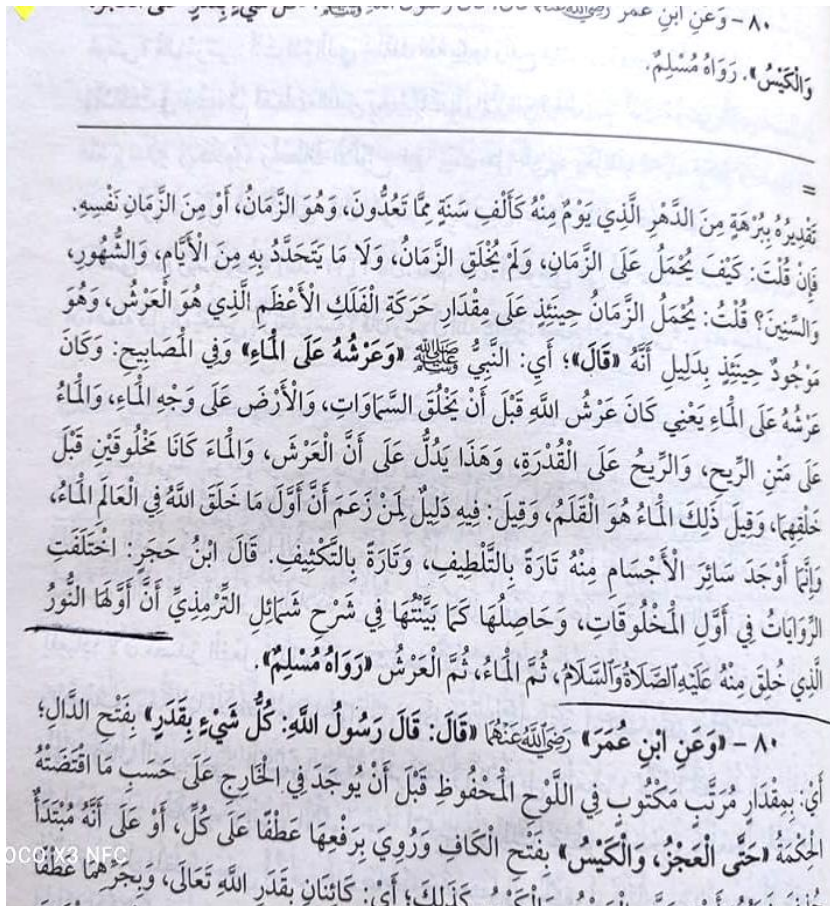 ٨٠ - وَعَنِ ابْنِ عُمَرَ رَضِيَ اللَّهُ عَنْهُمَا
وَالْكَيْسُ». رَوَاهُ مُسْلِمٌ.
=
تَقْدِيرُهُ بِبُرْهَةٍ مِنَ الدَّهْرِ الَّذِي يَوْمٌ مِنْهُ كَأَلْفِ سَنَةٍ مِمَّا تَعُدُّونَ، وَهُوَ الزَّمَانُ، أَوْ مِنَ الزَّمَانِ نَفْسِهِ.
فَإِنْ قُلْتَ: كَيْفَ يُحْمَلُ عَلَى الزَّمَانِ، وَلَمْ يُخْلَقِ الزَّمَانُ، وَلَا مَا يَتَحَدَّدُ بِهِ مِنَ الْأَيَّامِ، وَالشُّهُورِ،
وَالسِّنِينَ؟ قُلْتُ: يُحْمَلُ الزَّمَانُ حِينَئِذٍ عَلَى مِقْدَارِ حَرَكَةِ الْفَلَكِ الْأَعْظَمِ الَّذِي هُوَ الْعَرْشُ، وَهُوَ
مَوْجُودٌ حِينَئِذٍ بِدَلِيلِ أَنَّهُ «قَالَ»؛ أَيِ: النَّبِيُّ ﷺ «وَعَرْشُهُ عَلَى الْمَاءِ» وَفِي الْمَصَابِيحِ: وَكَانَ
عَرْشُهُ عَلَى الْمَاءِ يَعْنِي كَانَ عَرْشُ اللَّهِ قَبْلَ أَنْ يَخْلُقَ السَّمَاوَاتِ، وَالْأَرْضَ عَلَى وَجْهِ الْمَاءِ، وَالْمَاءُ
عَلَى مَتْنِ الرِّيحِ، وَالرِّيحُ عَلَى الْقُدْرَةِ، وَهَذَا يَدُلُّ عَلَى أَنَّ الْعَرْشَ، وَالْمَاءَ كَانَا مَخْلُوقَيْنِ قَبْلَ
خَلْقِهِمَا، وَقِيلَ ذَلِكَ الْمَاءُ هُوَ الْقَلَمُ، وَقِيلَ: فِيهِ دَلِيلٌ لِمَنْ زَعَمَ أَنَّ أَوَّلَ مَا خَلَقَ اللَّهُ فِي الْعَالَمِ الْمَاءُ،
وَإِنَّمَا أَوْجَدَ سَائِرَ الْأَجْسَامِ مِنْهُ تَارَةً بِالتَّلْطِيفِ، وَتَارَةً بِالتَّكْثِيفِ. قَالَ ابْنُ حَجَرٍ: اخْتَلَفَتِ
الرِّوَايَاتُ فِي أَوَّلِ الْمَخْلُوقَاتِ، وَحَاصِلُهَا كَمَا بَيَّنْتُهَا فِي شَرْحِ شَمَائِلِ التِّرْمِذِيِّ أَنَّ أَوَّلَهَا النُّورُ
الَّذِي خُلِقَ مِنْهُ عَلَيْهِ الصَّلَاةُ وَالسَّلَامُ، ثُمَّ الْمَاءُ، ثُمَّ الْعَرْشُ «رَوَاهُ مُسْلِمٌ».
٨٠ - «وَعَنِ ابْنِ عُمَرَ» رَضِيَ اللَّهُ عَنْهُمَا «قَالَ: قَالَ رَسُولُ اللَّهِ: كُلُّ شَيْءٍ بِقَدَرٍ» بِفَتْحِ الدَّالِ؛
أَيْ: بِمِقْدَارٍ مُرَتَّبٍ مَكْتُوبٍ فِي اللَّوْحِ الْمَحْفُوظِ قَبْلَ أَنْ يُوجَدَ فِي الْخَارِجِ عَلَى حَسَبِ مَا اقْتَضَتْهُ
الْحِكْمَةُ «حَتَّى الْعَجْزُ، وَالْكَيْسُ» بِفَتْحِ الْكَافِ وَرُوِيَ بِرَفْعِهَا عَطْفًا عَلَى كُلُّ، أَوْ عَلَى أَنَّهُ مُبْتَدَأٌ
كَذَلِكَ؛ أَيْ: كَائِنَانِ بِقَدَرِ اللَّهِ تَعَالَى، وَبِجَرِّهِمَا عَطْفًا
OCO X3 NFC